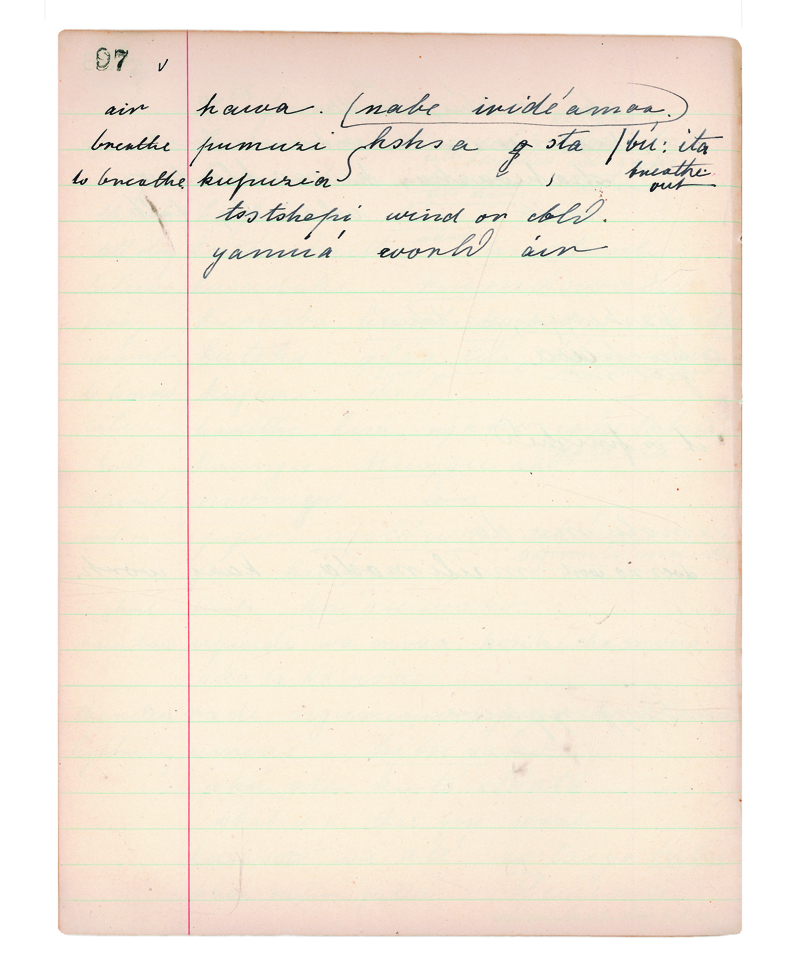 97 v
air hawa. (nabe iridé amoa.)
breathe pumuzi } hshs a q sta / bu: ita
to breathe kupuzia , breathe out
tstshepi wind or cold.
yamuá world áir